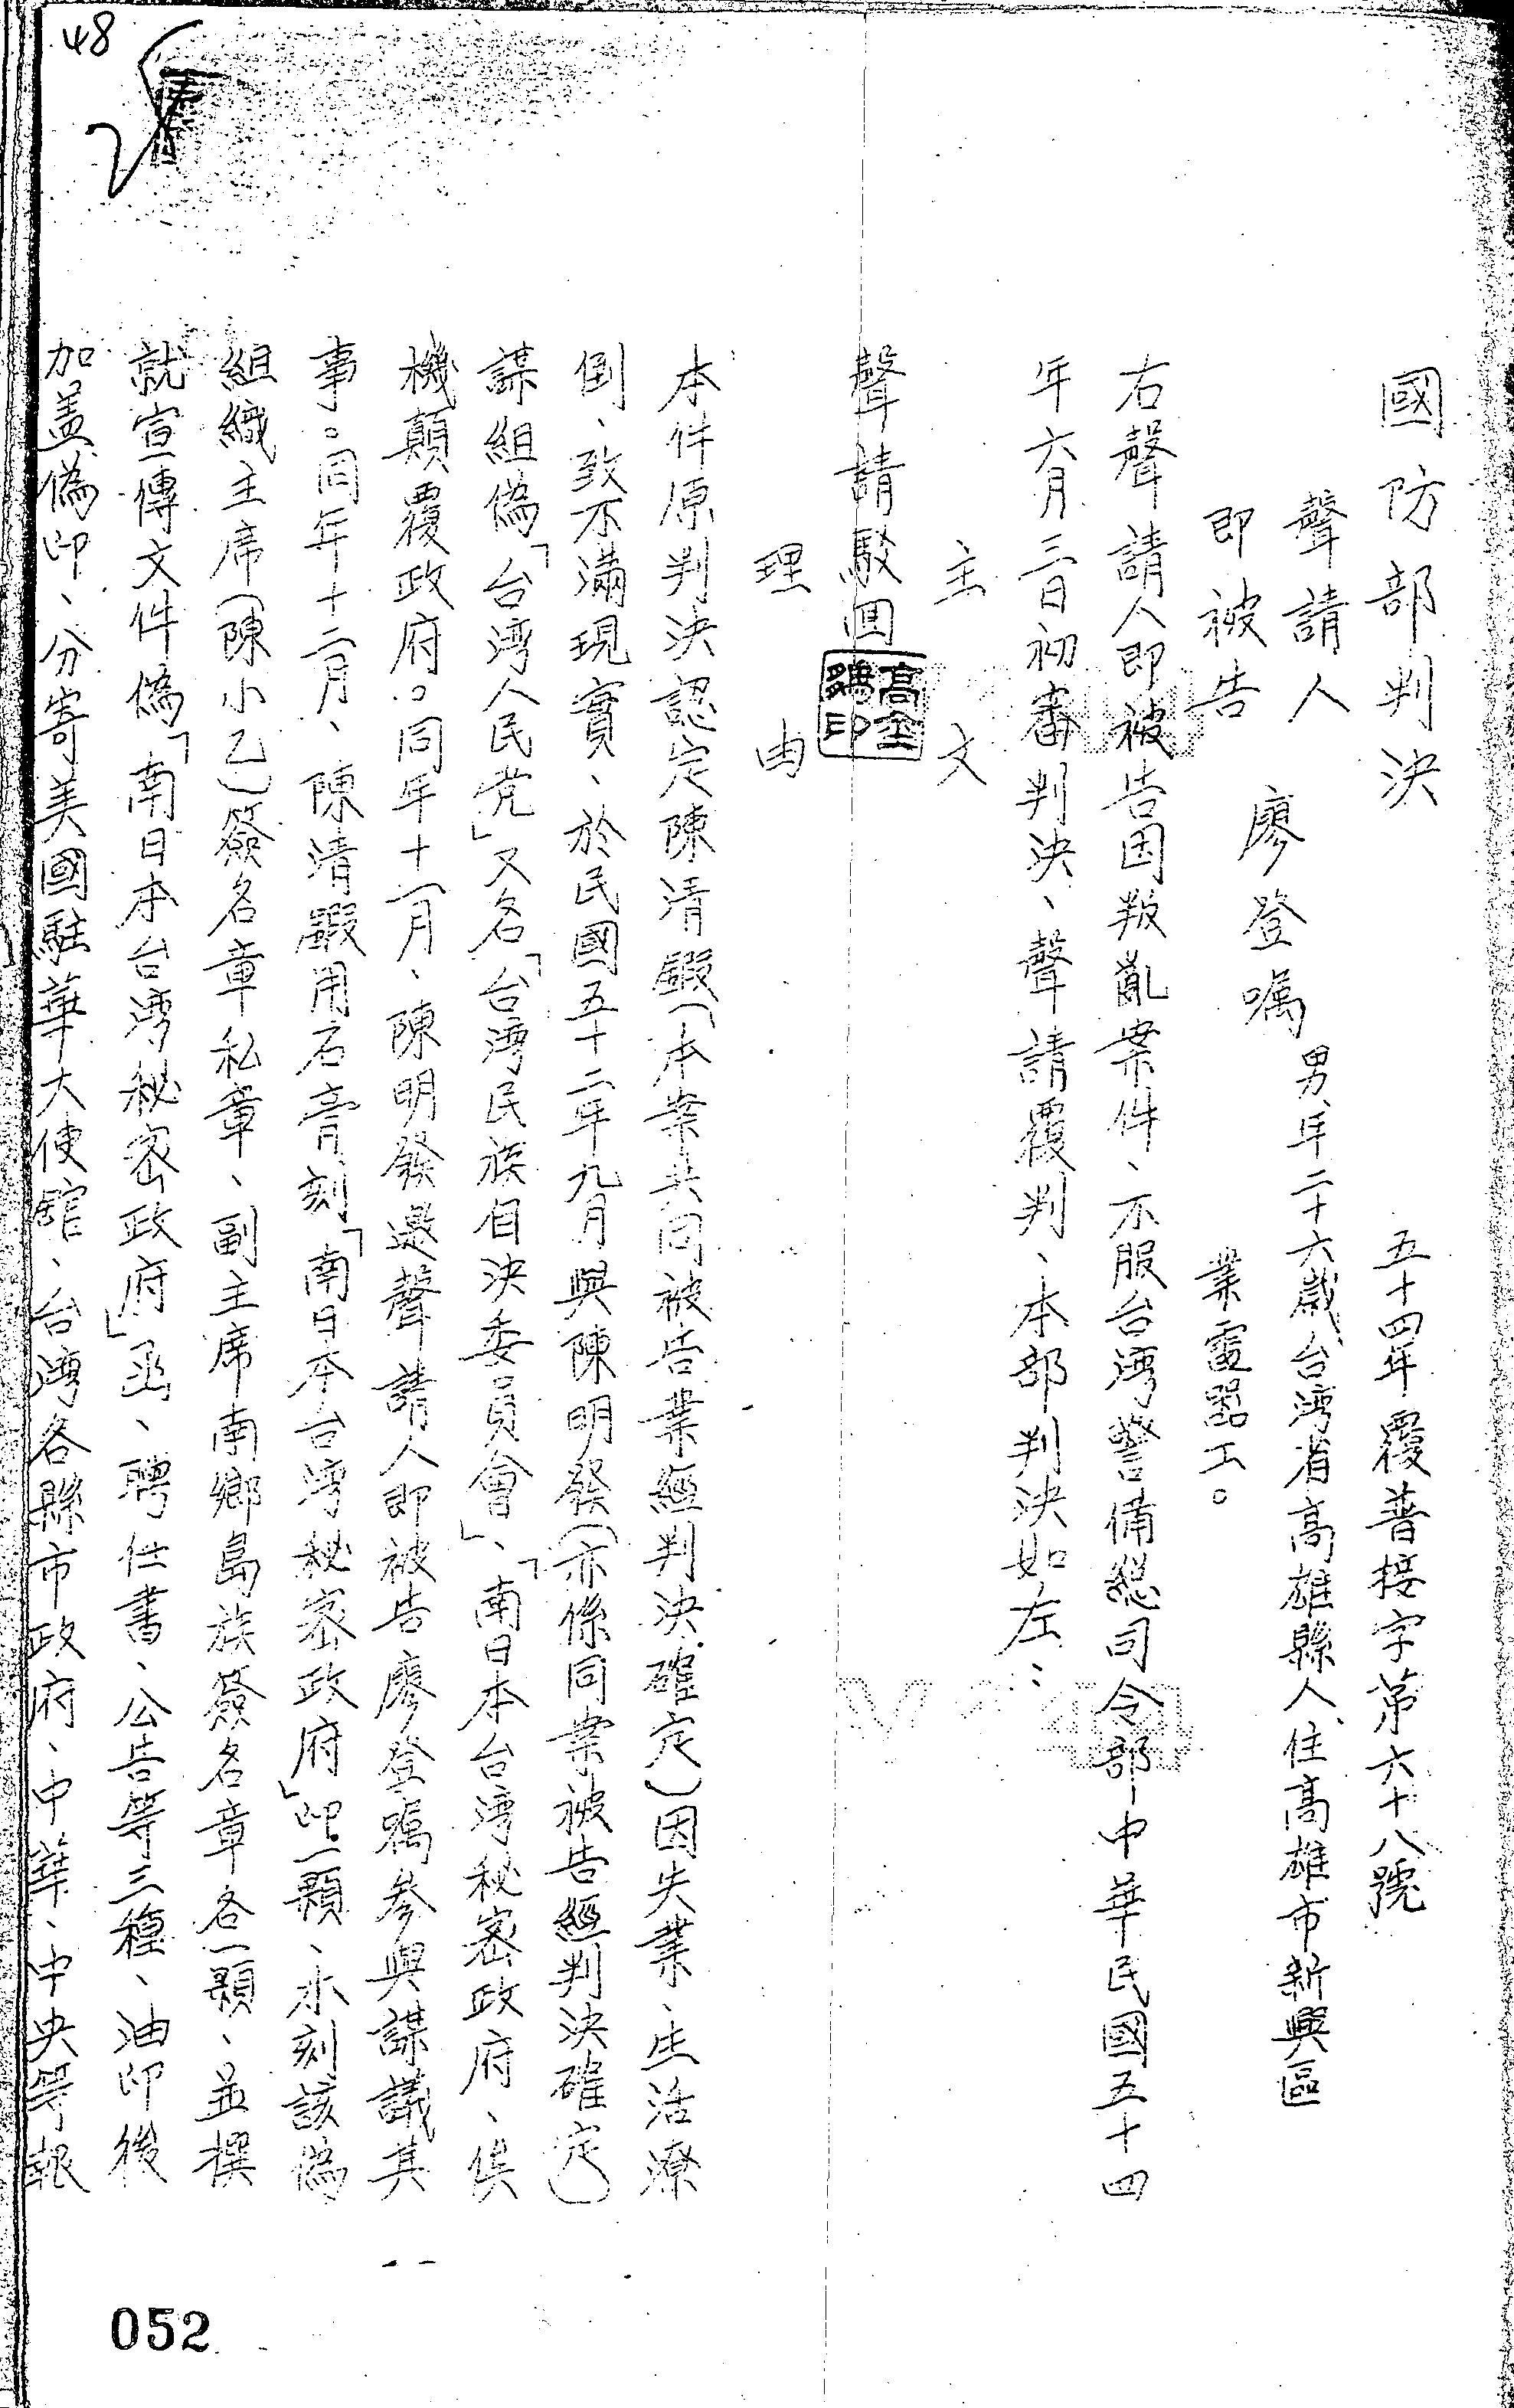 48
國防部判決
五十四年覆普接字第六十八號
聲請人
即被告
廖登嘱
男年二十六歲台湾省高雄縣人住高雄市新興區
業電器工。
右聲請人即被告因叛亂案件、不服台湾警備總司令部中華民國五十四
年六月三日初審判決、聲請覆判、本部判決如左：
主文
聲請駁回
理由
本件原判決認定陳清(本案共同被告業經判決確定)因失業、生活潦
倒、致不滿現實、於民國五十二年九月與陳明發(亦係同業被告經判決確定)
謀組偽「台湾人民党」又名「台湾民族自決委員會」、「南日本台湾秘密政府、俟
機顛覆政府。同年十一月、陳明發邀聲請人即被告廖登嘱參與謀議其
事。同年十二月、陳清用石膏刻「南日本台湾秘密政府」印一顆、木刻該偽
組織主席(陳小乙)簽名章私章、副主席南鄉島族簽名章各一顆、並撰
就宣傳文件偽「南日本台湾秘密政府」函、聘任書、公告等三種、油印後
加盖偽印、分寄美國駐華大使館、台灣各縣市政府、中華、中央等報
052